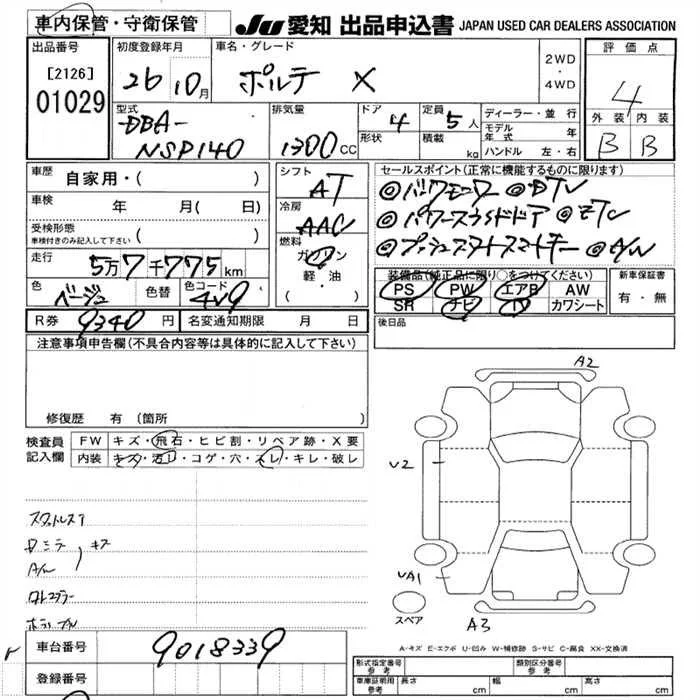 車内保管・守衛保管
JU 愛知 出品申込書 JAPAN USED CAR DEALERS ASSOCIATION
出品番号
[2126]
01029
初度登録年月
26 10月
車名・グレード
ポルテ X
2WD
・
4WD
評価点
4
外装 内装
B B
型式
DBA-
NSP140
排気量
1300 CC
ドア 4
形状
定員 5人
積載 kg
ディーラー・並行
モデル年式 年
ハンドル 左・右
車歴
自家用・( )
車検
年 月(日)
受検形態
車検付きのみ記入して下さい ( )
走行
5万7千775km
色 ベージュ
色替
色コード 4V9
シフト
AT
冷房
AAC
燃料
ガソリン
軽・油
( )
セールスポイント(正常に機能するものに限ります)
◎パワスロ ◎DTV
◎パワースライドドア ◎ETC
◎プッシュスタートスマートキー ◎A/W
装備品(純正品に限り○をつけてください)
PS PW エアB AW
SR ナビ TV カワシート
新車保証書
有・無
R券 9340円
名変通知期限 月 日
後日品
注意事項申告欄(不具合内容等は具体的に記入して下さい)
修復歴 有 (箇所 )
検査員
記入欄
FW キズ・飛石・ヒビ割・リペア跡・X要
内装 キズ・汚レ・コゲ・穴・スレ・キレ・破レ
キズ
A/W
A2
U2
UA1
A3
スペア
A-キズ E-エクボ U-凹み W-補修跡 S-サビ C-腐食 XX-交換済
車台番号
9018339
登録番号
形式指定番号
参考
類別区分番号
参考
車庫証明用
参考
長さ cm
幅 cm
高さ cm